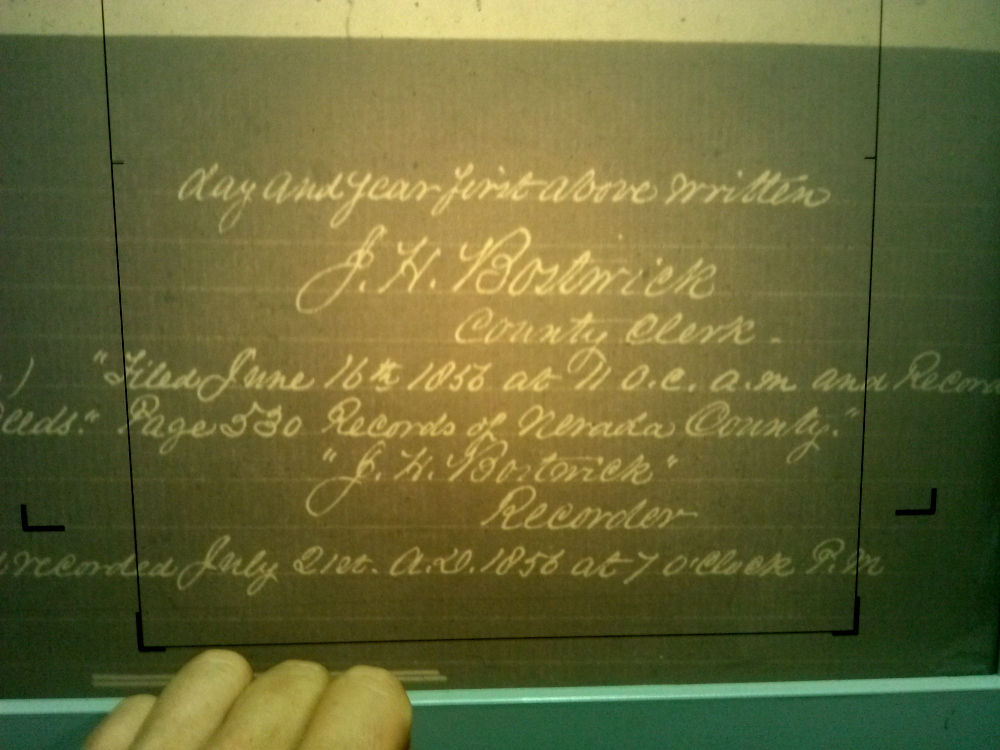 day and year first above written
J. H. Bostwick
County Clerk.
) "Filed June 16th 1856 at 11 O.C. a.m and Record
eeds." Page 530 Records of Nevada County."
"J. H. Bostwick"
Recorder
recorded July 21st. A.D. 1856 at 7 o'Clock P.M